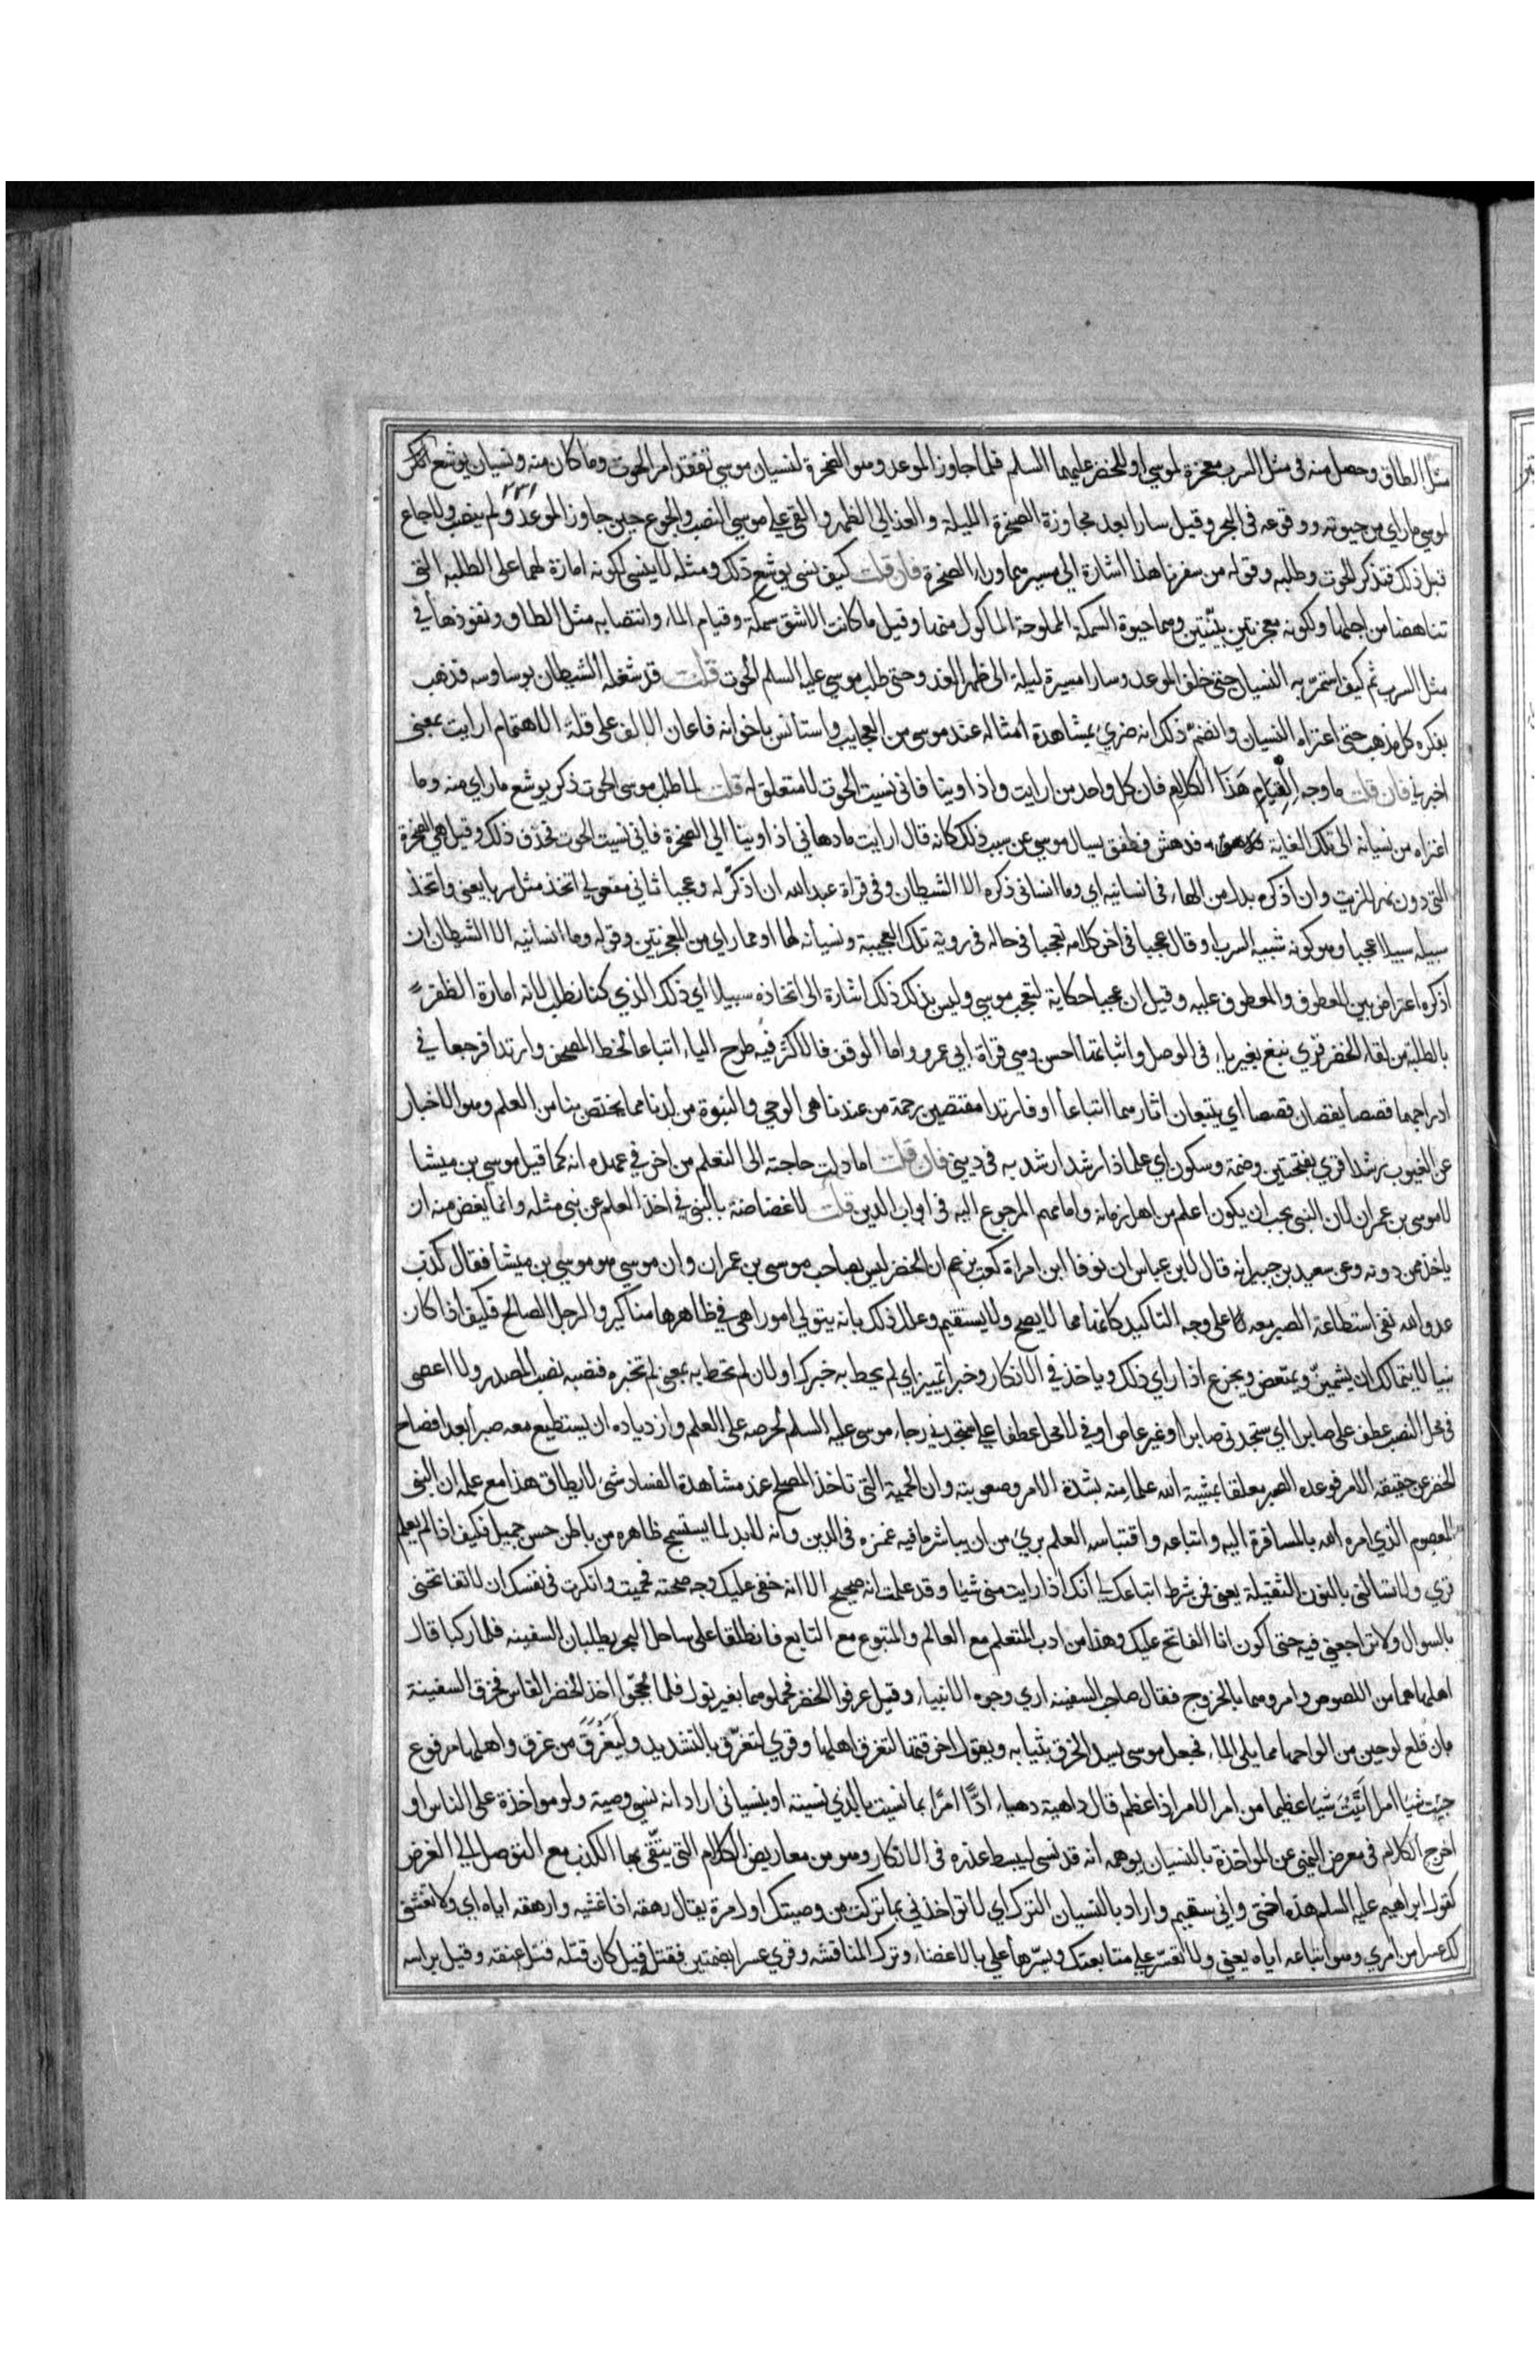 مثل الطاق وحصل منه فى مثل السرب معجزة لموسى او للخضر عليهما السلم فلما جاوزا الموعد وهو الصخرة لنسيان موسى تفقد امر الحوت وما كان منه ونسيان يوشع ان يذكر
٢٣١
لموسى ما راى من حيوته ووقوعه فى البحر وقيل سارا بعد مجاوزة الصخرة الليلة والغد الى الظهر والقى على موسى النصب والجوع حين جاوز الموعد ولم ينصب ولا جاع
قبل ذلك فتذكر الحوت وطلبه وقوله من سفرنا هذا اشارة الى مسيرهما وراء الصخرة فان قلت كيف نسى يوشع ذلك ومثله لا ينسى لكونه امارة لهما على الطلبة التى
تناهضا من اجلها ولكونه معجزتين بينتين وهما حيوة السمكة المملوحة الماكول منها وقيل ما كانت الا شق سمكة وقيام الماء وانتصابه مثل الطاق ونفوذها فى
مثل السرب ثم كيف استمر به النسيان حتى خلفا الموعد وسارا مسيرة ليلة الى ظهر الغد وحتى طلب موسى عليه السلم الحوت قلت قد شغله الشيطان بوساوسه فذهب
بفكره كل مذهب حتى اعتراه النسيان وانضم ذلك انه ضرى بمشاهدة امثاله عند موسى من العجايب واستانس باخوانه فاعان الالف على قلة الاهتمام ارايت بمعنى
اخبرنى فان قلت ما وجه التيام هذا الكلام فان كل واحد من ارايت واذ اوينا فانى نسيت الحوت لا متعلق له قلت لما طلب موسى الحوت ذكر يوشع ما راى منه وما
اعتراه من نسيانه الى تلك الغاية فدهش فطفق يسال موسى عن سبب ذلك كانه قال ارايت ما دهانى اذ اوينا الى الصخرة فانى نسيت الحوت فحذف ذلك وقيل هى الصخرة
التى دون نهر الزيت وان اذكره بدل من الهاء فى انسانيه اى وما انسانى ذكره الا الشيطان وفى قراة عبد الله ان اذكر له وعجبا ثانى مفعولى اتخذ مثل سربا يعنى واتخذ
سبيله سبيلا عجبا وهو كونه شبيه السرب او قال عجبا فى اخر كلامه تعجبا فى حاله فى روية تلك العجيبة ونسيانه لها او مما راى من المعجزتين وقوله وما انسانيه الا الشيطان ان
اذكره اعتراض بين المعطوف والمعطوف عليه وقيل ان عجبا حكاية لتعجب موسى وليس بذلك ذلك اشارة الى اتخاذه سبيلا اى ذلك الذي كنا نطلب لانه امارة الظفر
بالطلبة من لقاء الخضر قرى نبغ بغير ياء فى الوصل واثباتها احسن وهى قراة ابى عمرو واما الوقف فالاكثر فيه طرح الياء اتباعا لخط المصحف وارتدا فرجعا فى
ادراجهما قصصا يقصان قصصا اى يتبعان اثارهما اتباعا او فارتدا مقتصين رحمة من عندنا هى الوحى والنبوة من لدنا مما يختص بنا من العلم وهو الاخبار
عن الغيوب رشدا قرى بفتحتين وضمة وسكون اى علما ذا رشد ارشد به فى دينى فان قلت اما دلت حاجته الى التعلم من اخر فى عهده انه كما قيل موسى بن ميشا
لا موسى بن عمران لان النبى يجب ان يكون اعلم من اهل زمانه وامامهم المرجوع اليه فى ابواب الدين قلت لا غضاضة بالنبى فى اخذ العلم عن نبى مثله وانما يغض منه ان
ياخذه ممن دونه وعن سعيد بن جبير انه قال لابن عباس ان نوفا ابن امراة كعب يزعم ان الخضر ليس بصاحب موسى بن عمران وان موسى هو موسى بن ميشا فقال كذب
عدو الله نفى استطاعة الصبر معه على وجه التاكيد كانها مما لا يصح ولا يستقيم وعلل ذلك بانه يتولى امورا هى فى ظاهرها مناكير والرجل الصالح فكيف اذا كان
نبيا لا يتمالك ان يشمئز ويمتعض ويجزع اذا راى ذلك وياخذ فى الانكار وخبرا تمييز اى لم يحط به خبرك او لان لم تحط به بمعنى لم تخبره فنصبه نصب المصدر ولا اعصى
فى محل النصب عطف على صابرا اى ستجدنى صابرا او غير عاص او فى لا محل عطفا على ستجدنى رجاء موسى عليه السلم لحرصه على العلم وازدياده ان يستطيع معه صبرا بعد افصاح
الخضر عن حقيقة الامر فوعده الصبر معلقا بمشية الله علما منه بشدة الامر وصعوبته وان الحمية التى تاخذ المصلح عند مشاهدة الفساد شئ لا يطاق هذا مع علمه ان النبى
المعصوم الذي امره الله بالمسافرة اليه واتباعه واقتباسه العلم برئ من ان يباشر ما فيه غمزه فى الدين وانه لابد لما يستسمج ظاهره من باطن حسن جميل فكيف اذا لم يعلم
قرى ولا تسالنى بالنون الثقيلة يعنى فمن شرط اتباعك لى انك اذا رايت منى شيا وقد علمت انه صحيح الا انه خفى عليك وجه صحته فحميت وانكرت فى نفسك ان لا تفاتحنى
بالسوال ولا تراجعنى فيه حتى اكون انا الفاتح عليك وهذا من ادب المتعلم مع العالم والمتبوع مع التابع فانطلقا على ساحل البحر يطلبان السفينه فلما ركبا قال
اهلها هما من اللصوص وامروهما بالخروج فقال صاحب السفينه ارى وجوه الانبياء وقيل عرفوا الخضر فحملوهما بغير نول فلما لججوا اخذ الخضر الفاس فخرق السفينة
بان قلع لوحين من الواحها مما يلى الماء فجعل موسى يسد الخرق بثيابه ويقول اخرقتها لتغرق اهلها وقرى لتغرق بالتشديد وليغرق من غرق واهلها مرفوع
جيت شيا امرا اتيت شيا عظيما من امر الامر اذا عظم قال داهية دهياء ادا امرا بما نسيت بالذي نسيته او بنسيانى اراد انه نسى وصيته ولا مواخذة على الناسى او
اخرج الكلام فى معرض النهى عن المواخذة بالنسيان يوهمه انه قد نسى ليبسط عذره فى الانكار وهو من معاريض الكلام التى يتقى بها الكذب مع التوصل الى الغرض
كقول ابراهيم عليه السلم هذه اختى وانى سقيم واراد بالنسيان الترك اى لا تواخذنى بما تركت من وصيتك اول مرة يقال رهقه اذا غشيه وارهقه اياه اى ولا تغشنى
عسرا من امرى وهو اتباعه اياه يعنى ولا تعسر على متابعتك ويسرها على بالاغضاء وترك المناقشه وقرى عسرا بضمتين فقتله قيل كان قتله فتل عنقه وقيل براسه